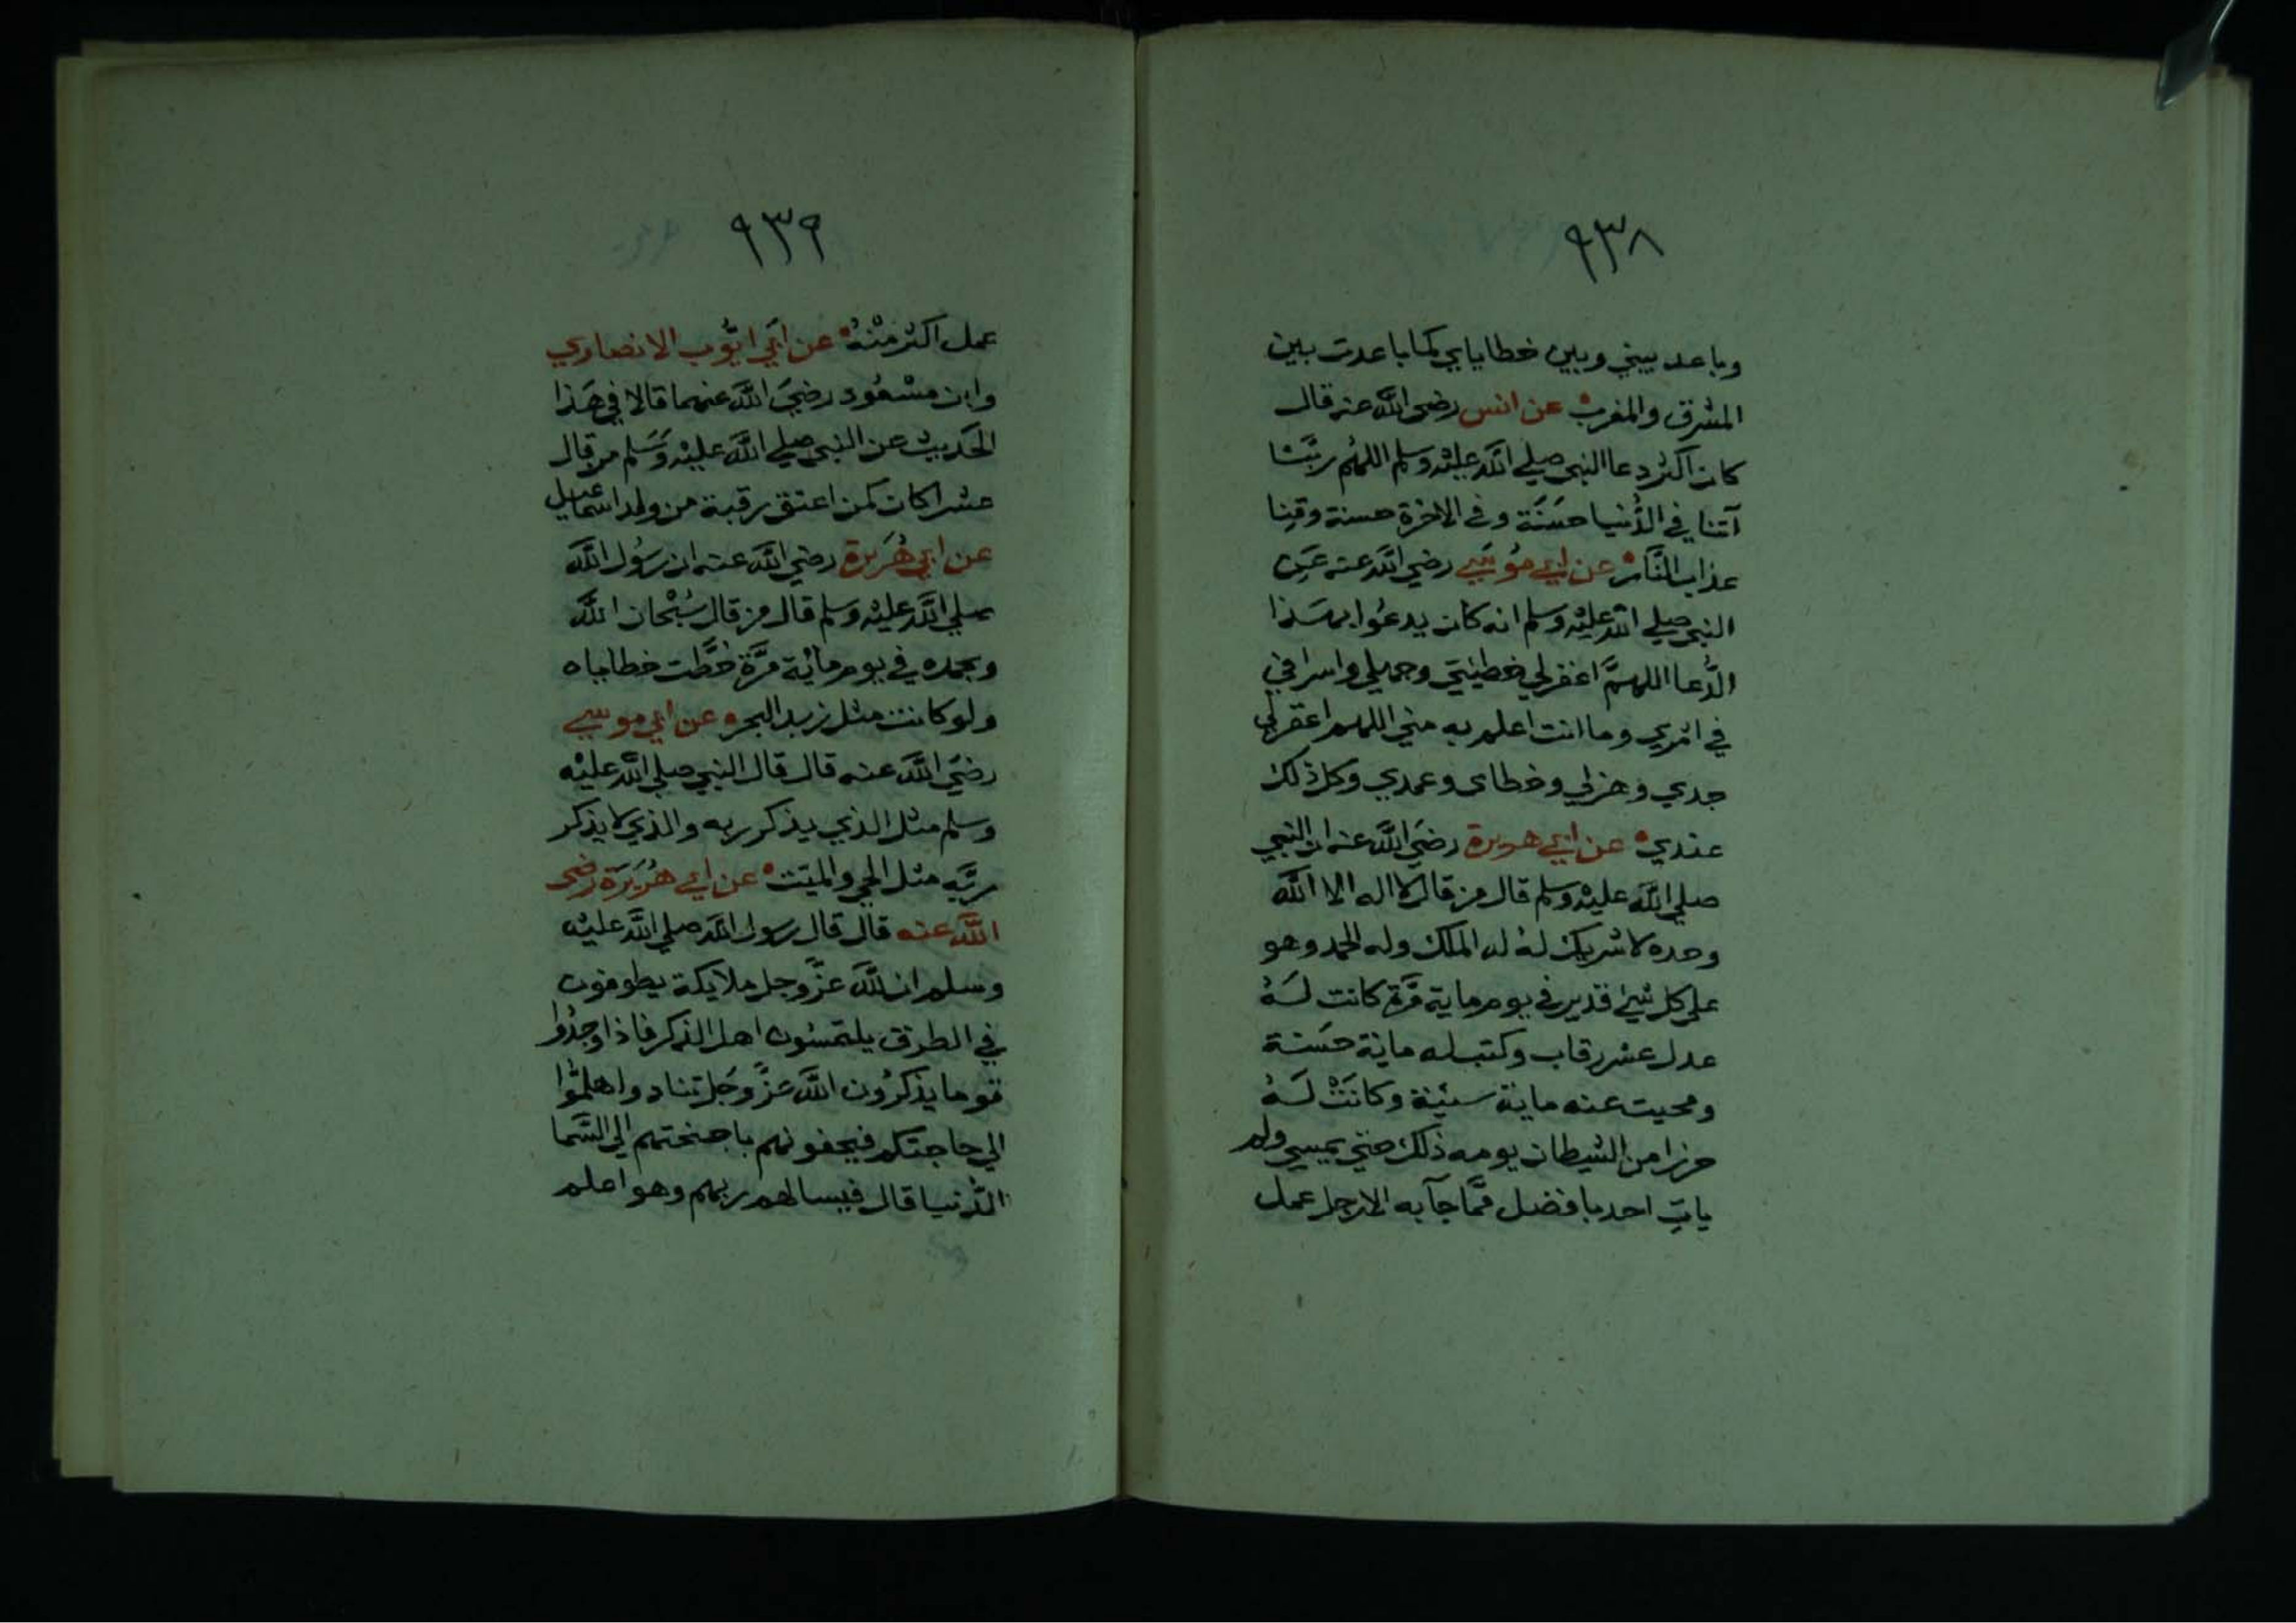 ٩٣٨
وباعد بيني وبين خطاياي كما باعدت بين
المشرق والمغرب عن انس رضى الله عنه قال
كان اكثر دعا النبي صلي الله عليه وسلم اللهم ربنا
آتنا في الدُّنيا حسَنَة وفي الاخرة حسنة وقِنا
عذاب النَّار عن ابي مُوسَي رضي الله عنه عَن
النبي صلي الله عليه وسلم انه كان يدعُوا بهذا
الدُّعا اللهمَّ اغفر لي خطيئتي وجهلي واسرافي
في امري وما انت اعلم به مني اللهم اغفر لي
جدي وهزلي وخطاى وعمدي وكل ذلك
عندي عن ابي هريرة رضيَ الله عنه ان النبي
صلي الله عليه وسلم قال من قال لا اله الا الله
وحده لا شريك لهُ له الملك وله الحمد وهو
علي كل شيئ قدير في يوم ماية مَرَّة كانت لَهُ
عدل عشر رقاب وكتب له ماية حَسَنة
ومحيت عنه ماية سيئة وكانَتْ لَهُ
حرزا من الشيطان يومه ذلك حتي يمسي ولم
ياتِ احد بافضل مَّما جآ به الا رجل عمل
٩٣٩
عمل اكثر منْهُ عن ابَي ايُّوب الانصاري
وابن مسْعُود رضيَ الله عنهما قالا في هَذا
الحَديث عن النبي صلي الله عليْه وَسَلم من قال
عشرا كان كمن اعتق رقبة من ولد اسماعيل
عن ابي هُرَيرة رضي الله عنه ان رسُول الله
صلي الله عليْه وسلم قال من قال سُبْحان الله
وبحمده في يوم ماية مَرَّة حُطَّت خطاياه
ولو كانت مثل زبد البحر عن ابي موسي
رضيَ الله عنه قال قال النبي صلي الله عليْه
وسلم مثل الذي يذكر ربه والذي لا يذكر
ربَّه مثل الحي والميت عن ابي هُرَيرَة رضى
الله عنه قال قال رسول الله صلي الله عليْه
وسلم ان لله عزَّ وجل ملايكة يطوفون
في الطرق يلتمسُون اهل الذكر فاذا وجدُوا
قوما يذكرُون الله عزَّ وجَل تنادوا هلمُّوا
الي حاجتكم فيحفونهم باجنحتهم الي السَّما
الدُّنيا قال فيسالهم ربهم وهو اعلم